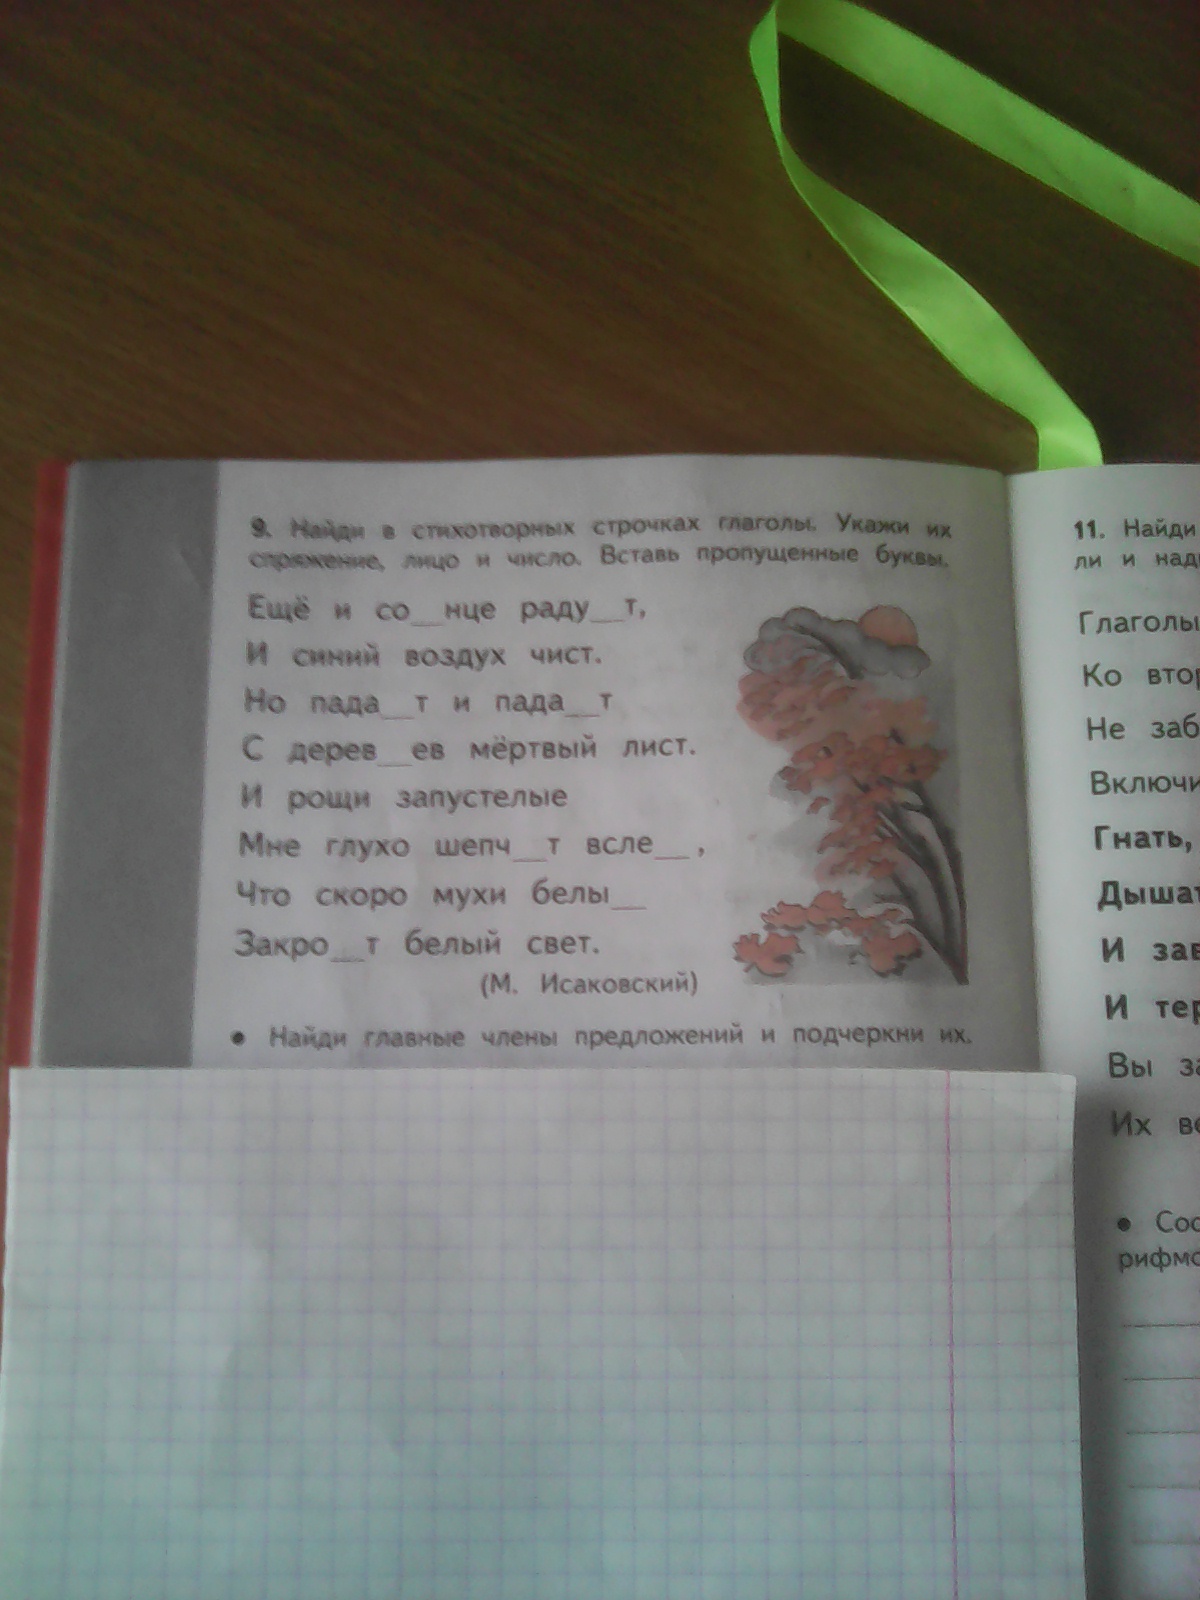 9. Найди в стихотворных строчках глаголы. Укажи их
спряжение, лицо и число. Вставь пропущенные буквы.
Ещё и со__нце раду__т,
И синий воздух чист.
Но пада__т и пада__т
С дерев__ев мёртвый лист.
И рощи запустелые
Мне глухо шепч__т всле__,
Что скоро мухи белы__
Закро__т белый свет.
(М. Исаковский)
• Найди главные члены предложений и подчеркни их.
11. Найди
ли и
Глаголы
Ко
Не
Гнать,
И
И
Вы
Их
•